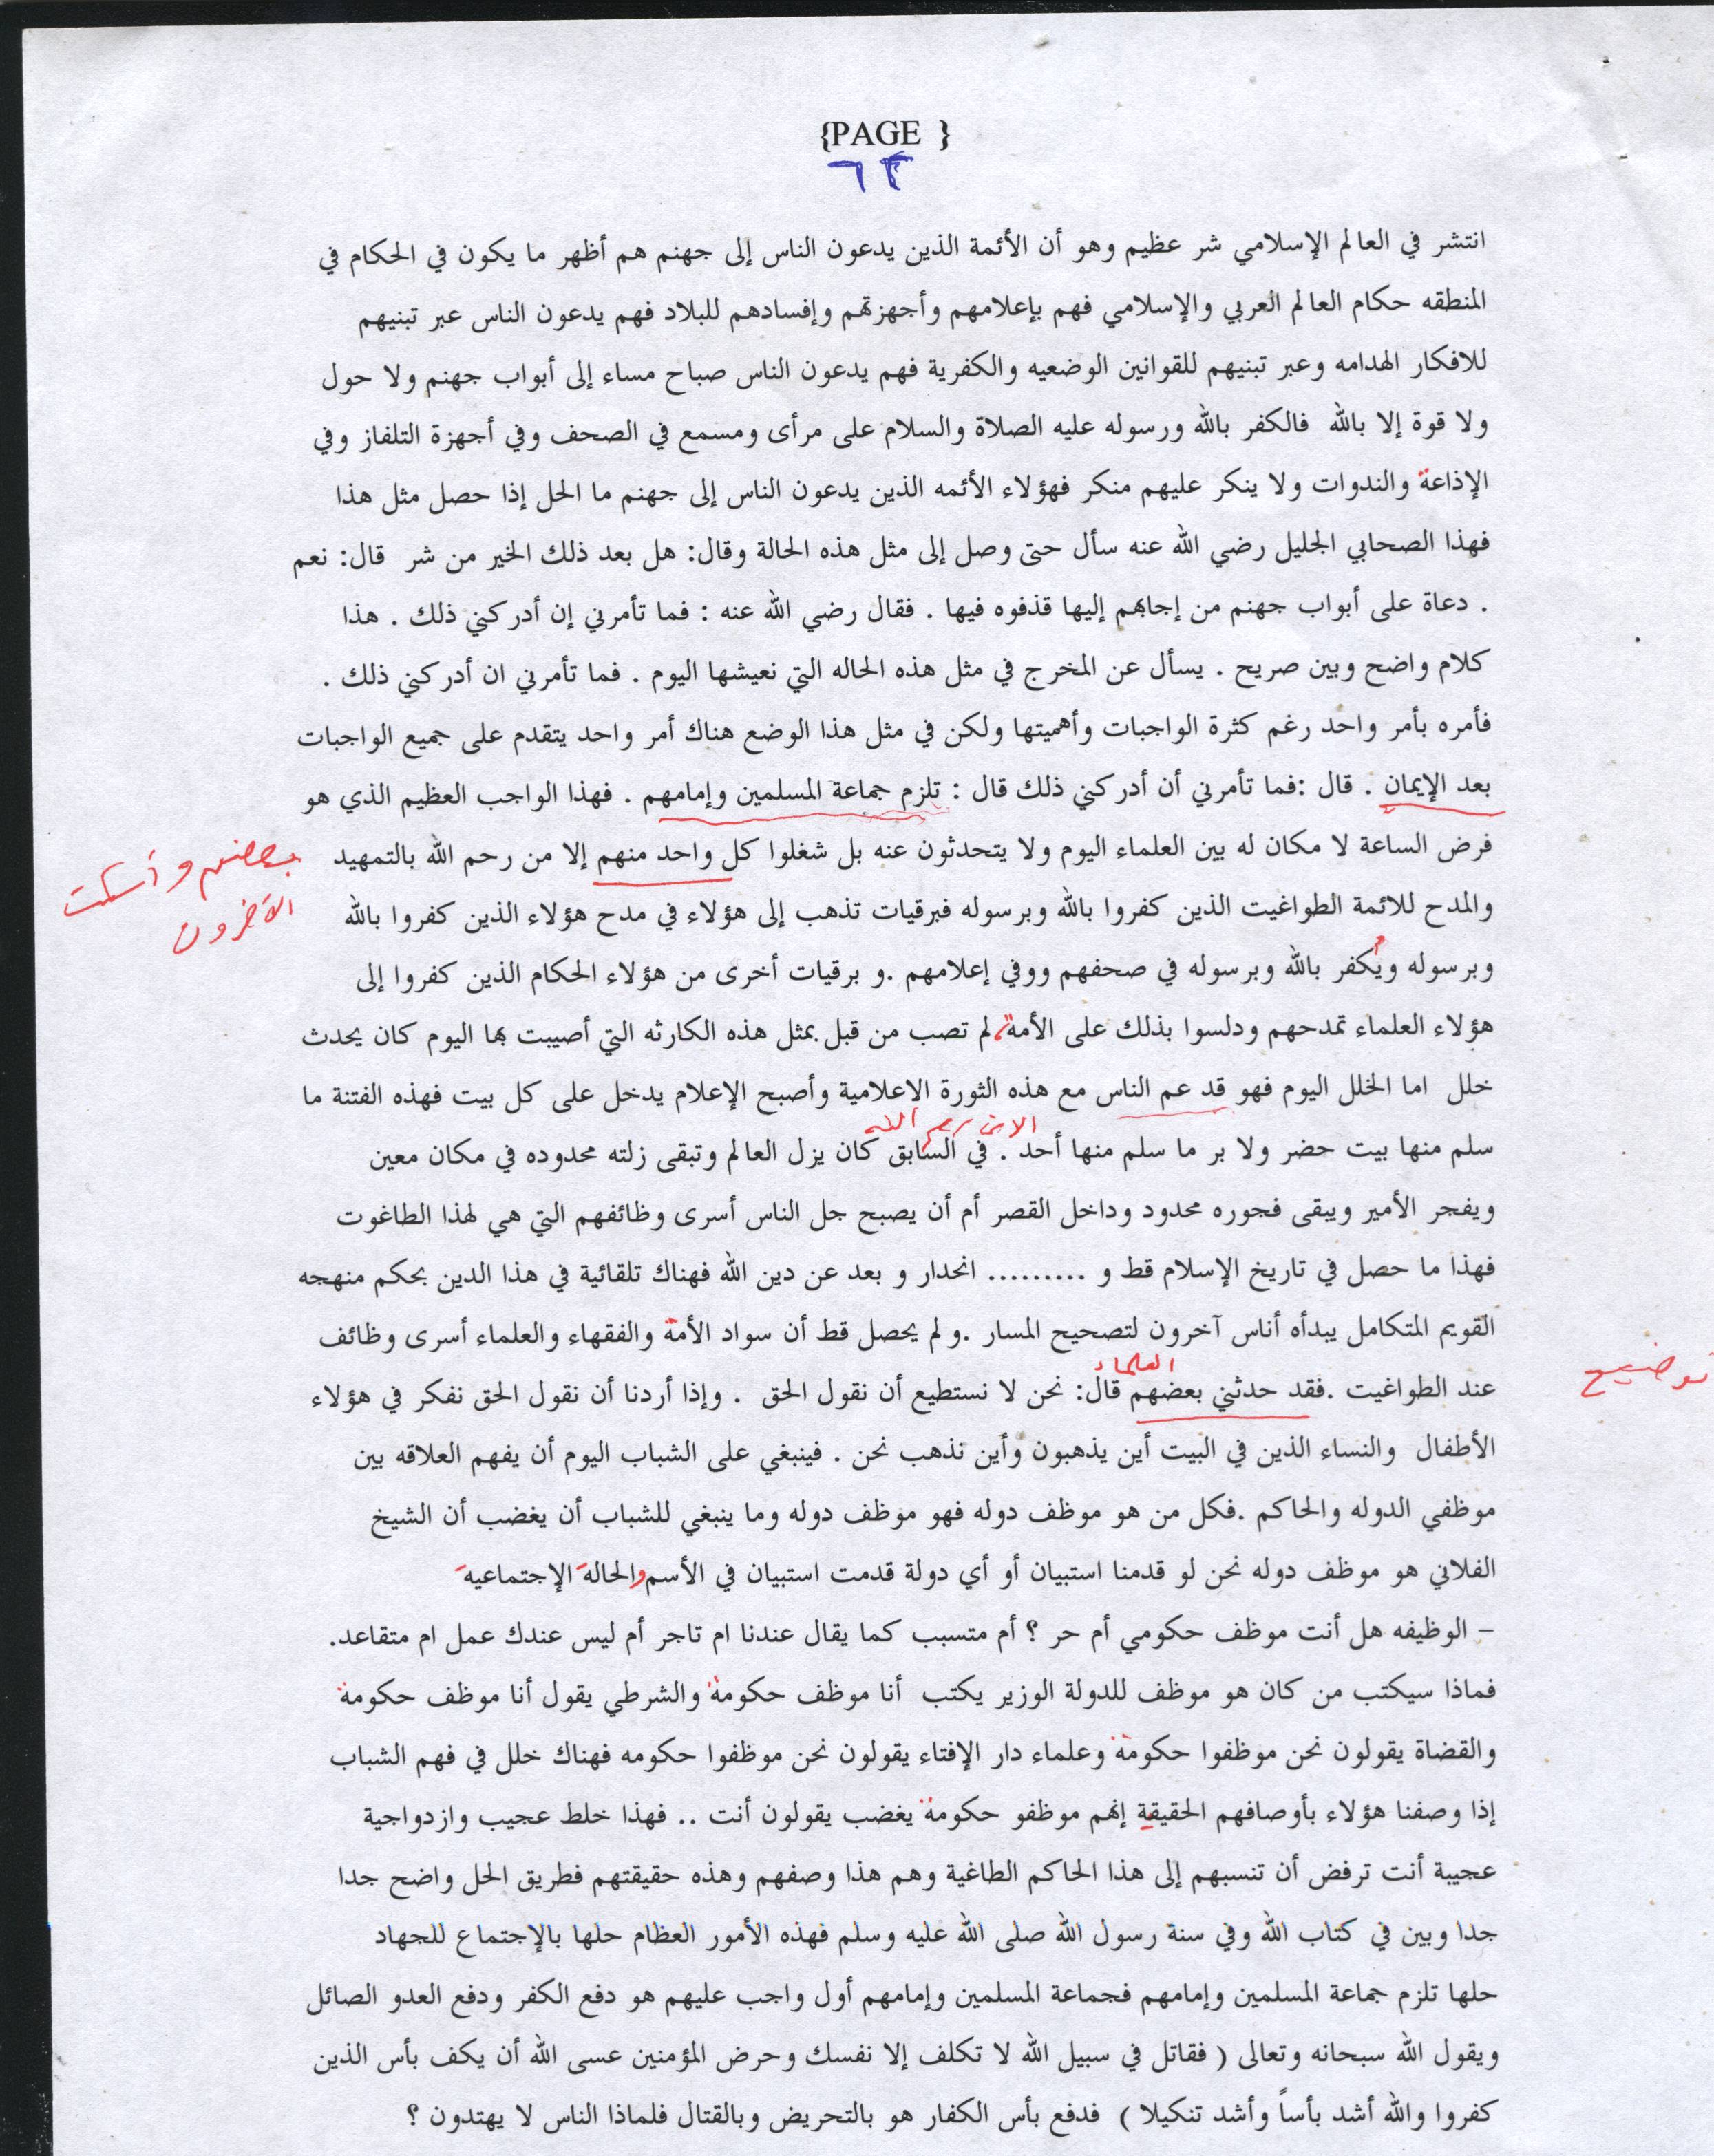 {PAGE }
٦٣
انتشر في العالم الإسلامي شر عظيم وهو أن الأئمة الذين يدعون الناس إلى جهنم هم أظهر ما يكون في الحكام في
المنطقه حكام العالم العربي والإسلامي فهم بإعلامهم وأجهزتهم وإفسادهم للبلاد فهم يدعون الناس عبر تبنيهم
للافكار الهدامه وعبر تبنيهم للقوانين الوضعيه والكفرية فهم يدعون الناس صباح مساء إلى أبواب جهنم ولا حول
ولا قوة إلا بالله فالكفر بالله ورسوله عليه الصلاة والسلام على مرأى ومسمع في الصحف وفي أجهزة التلفاز وفي
الإذاعة والندوات ولا ينكر عليهم منكر فهؤلاء الأئمه الذين يدعون الناس إلى جهنم ما الحل إذا حصل مثل هذا
فهذا الصحابي الجليل رضي الله عنه سأل حتى وصل إلى مثل هذه الحالة وقال: هل بعد ذلك الخير من شر قال: نعم
. دعاة على أبواب جهنم من إجابهم إليها قذفوه فيها . فقال رضي الله عنه : فما تأمرني إن أدركني ذلك . هذا
كلام واضح وبين صريح . يسأل عن المخرج في مثل هذه الحاله التي نعيشها اليوم . فما تأمرني ان أدركني ذلك .
فأمره بأمر واحد رغم كثرة الواجبات وأهميتها ولكن في مثل هذا الوضع هناك أمر واحد يتقدم على جميع الواجبات
بعد الإيمان . قال :فما تأمرني أن أدركني ذلك قال : تلزم جماعة المسلمين وإمامهم . فهذا الواجب العظيم الذي هو
فرض الساعة لا مكان له بين العلماء اليوم ولا يتحدثون عنه بل شغلوا كل واحد منهم إلا من رحم الله بالتمهيد
بعضهم وأسكت
الآخرون
والمدح للائمة الطواغيت الذين كفروا بالله وبرسوله فبرقيات تذهب إلى هؤلاء في مدح هؤلاء الذين كفروا بالله
وبرسوله ويُكفر بالله وبرسوله في صحفهم ووفي إعلامهم .و برقيات أخرى من هؤلاء الحكام الذين كفروا إلى
هؤلاء العلماء تمدحهم ودلسوا بذلك على الأمة، لم تصب من قبل بمثل هذه الكارثه التي أصيبت بها اليوم كان يحدث
خلل اما الخلل اليوم فهو قد عم الناس مع هذه الثورة الاعلامية وأصبح الإعلام يدخل على كل بيت فهذه الفتنة ما
الا من رحم الله
سلم منها بيت حضر ولا بر ما سلم منها أحد . في السابق كان يزل العالم وتبقى زلته محدوده في مكان معين
ويفجر الأمير ويبقى فجوره محدود وداخل القصر أم أن يصبح جل الناس أسرى وظائفهم التي هي لهذا الطاغوت
فهذا ما حصل في تاريخ الإسلام قط و ......... انحدار و بعد عن دين الله فهناك تلقائية في هذا الدين بحكم منهجه
القويم المتكامل يبدأه أناس آخرون لتصحيح المسار .و لم يحصل قط أن سواد الأمة والفقهاء والعلماء أسرى وظائف
العلماء
توضيح
عند الطواغيت .فقد حدثني بعضهم قال: نحن لا نستطيع أن نقول الحق . وإذا أردنا أن نقول الحق نفكر في هؤلاء
الأطفال والنساء الذين في البيت أين يذهبون وأين نذهب نحن . فينبغي على الشباب اليوم أن يفهم العلاقه بين
موظفي الدوله والحاكم .فكل من هو موظف دوله فهو موظف دوله وما ينبغي للشباب أن يغضب أن الشيخ
الفلاني هو موظف دوله نحن لو قدمنا استبيان أو أي دولة قدمت استبيان في الأسم والحالة الإجتماعية
– الوظيفه هل أنت موظف حكومي أم حر ؟ أم متسبب كما يقال عندنا ام تاجر أم ليس عندك عمل ام متقاعد.
فماذا سيكتب من كان هو موظف للدولة الوزير يكتب أنا موظف حكومة والشرطي يقول أنا موظف حكومة
والقضاة يقولون نحن موظفوا حكومة وعلماء دار الإفتاء يقولون نحن موظفوا حكومه فهناك خلل في فهم الشباب
إذا وصفنا هؤلاء بأوصافهم الحقيقية إنهم موظفو حكومة يغضب يقولون أنت .. فهذا خلط عجيب وازدواجية
عجيبة أنت ترفض أن تنسبهم إلى هذا الحاكم الطاغية وهم هذا وصفهم وهذه حقيقتهم فطريق الحل واضح جدا
جدا وبين في كتاب الله وفي سنة رسول الله صلى الله عليه وسلم فهذه الأمور العظام حلها بالإجتماع للجهاد
حلها تلزم جماعة المسلمين وإمامهم فجماعة المسلمين وإمامهم أول واجب عليهم هو دفع الكفر ودفع العدو الصائل
ويقول الله سبحانه وتعالى ( فقاتل في سبيل الله لا تكلف إلا نفسك وحرض المؤمنين عسى الله أن يكف بأس الذين
كفروا والله أشد بأساً وأشد تنكيلا ) فدفع بأس الكفار هو بالتحريض وبالقتال فلماذا الناس لا يهتدون ؟